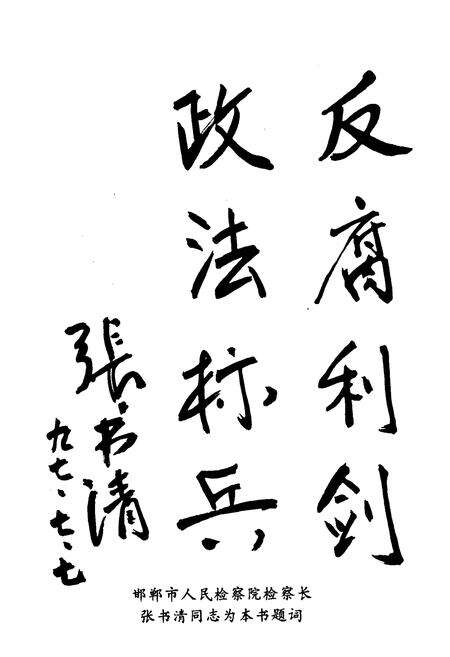 反腐利剑
政法标兵
張书清
九七、七、七
邯郸市人民检察院检察长
张书清同志为本书题词